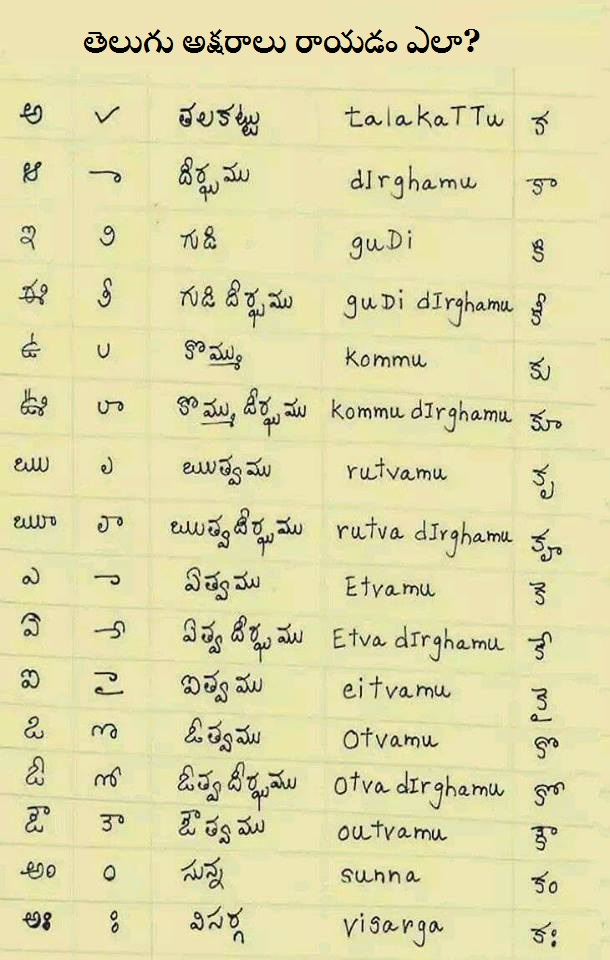 తెలుగు అక్షరాలు రాయడం ఎలా?
అ ✓ తలకట్టు talakaTTu క
ఆ ా దీర్ఘము dIrghamu కా
ఇ ి గుడి guDi కి
ఈ ీ గుడి దీర్ఘము guDi dIrghamu కీ
ఉ ు కొమ్ము kommu కు
ఊ ూ కొమ్ము దీర్ఘము kommu dIrghamu కూ
ఋ ృ ఋత్వము rutvamu కృ
ౠ ౄ ఋత్వ దీర్ఘము rutva dIrghamu కౄ
ఎ ె ఏత్వము Etvamu కె
ఏ ే ఏత్వ దీర్ఘము Etva dIrghamu కే
ఐ ై ఐత్వము eitvamu కై
ఒ ొ ఓత్వము Otvamu కొ
ఓ ో ఓత్వ దీర్ఘము Otva dIrghamu కో
ఔ ౌ ఔత్వము outvamu కౌ
అం ం సున్న sunna కం
అః ః విసర్గ visarga కః